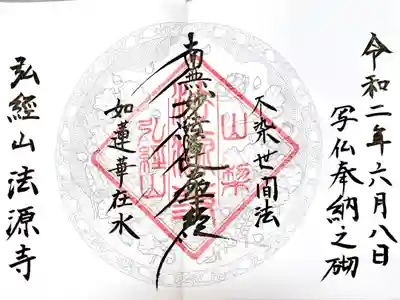 令和二年六月八日
写仏奉納之砌
不染世間法
南無妙法蓮華経
如蓮華在水
弘經山法源寺
山梨
弘經山